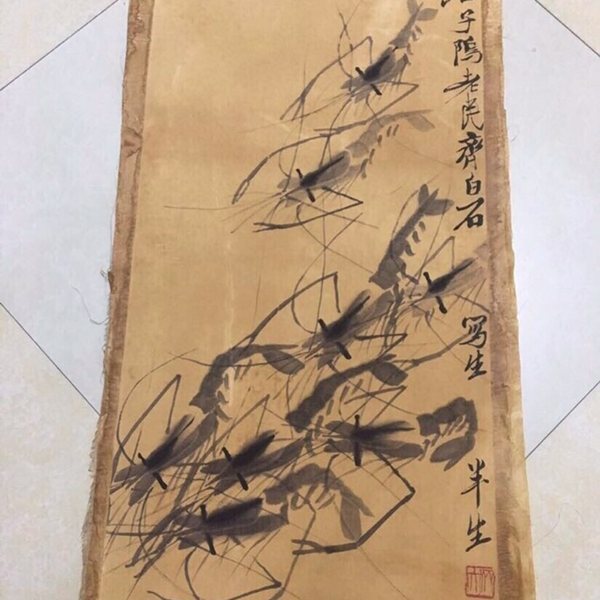 子隖老民齊白石
写生
半生